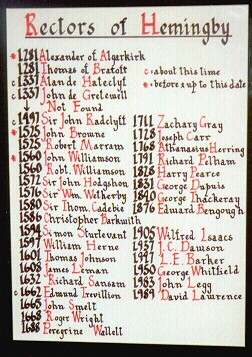 Rectors of Hemingby
* 1281 Alexander of Algarkirk
1281 Thomas of Bratoft
c 1337 Alan de Hateclyf
c 1337 John de Gretewell
Not Found
c 1497 Sir John Radclyff
* 1525 John Browne
1525 Robert Marram
* 1560 John Williamson
1560 Robt. Williamson
1572 Sir John Hodgshon
1576 Sir Wm. Wetherby
1580 Sir Thom. Cadebie
1586 Christopher Barkwith
1594 Simon Sturtevant
1597 William Herne
1601 Thomas Johnson
1608 James Leman
1632 Richard Sansam
c 1662 Edmund Trevillion
1665 John Smelt
1668 Roger Wright
1688 Peregrine Wallett
c = about this time
* = before & up to this date
1711 Zachary Gray
1728 Joseph Carr
1768 Athanasius Herring
1791 Richard Pelham
1828 Harry Pearce
1831 George Dapuis
1840 George Thackeray
1876 Edward Bengough
1905 Wilfred Isaacs
1937 J. C. Dawson
1947 L. E. Barker
1950 George Whitfield
1983 John Legg
1989 David Lawrence